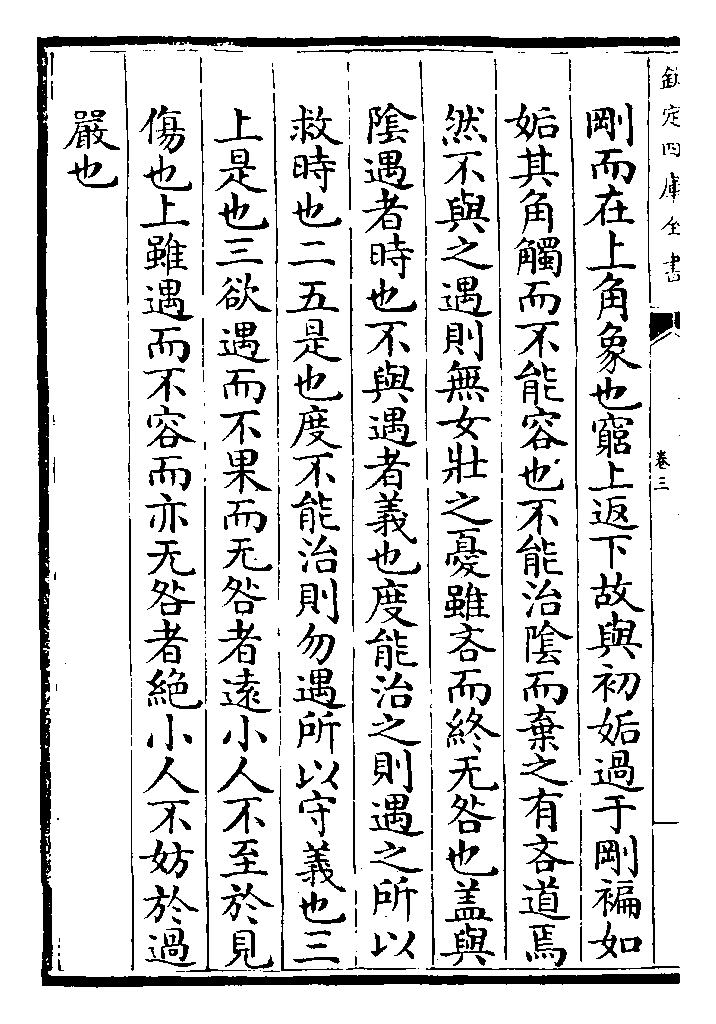 欽定四庫全書
卷三
剛而在上角象也窮上返下故與初姤過于剛褊如
姤其角觸而不能容也不能治陰而棄之有吝道焉
然不與之遇則無女壯之憂雖吝而終无咎也蓋與
陰遇者時也不與遇者義也度能治之則遇之所以
救時也二五是也度不能治則勿遇所以守義也三
上是也三欲遇而不果而无咎者遠小人不至於見
傷也上雖遇而不容而亦无咎者絶小人不妨於過
嚴也